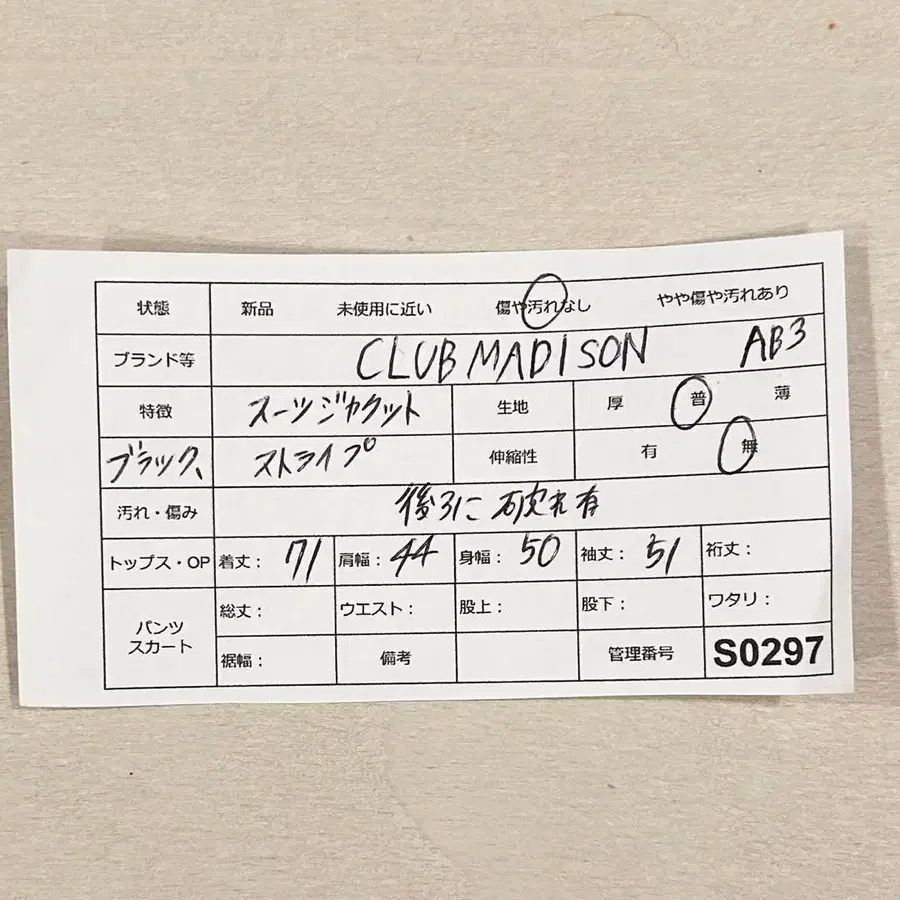 状態 新品 未使用に近い 傷や汚れなし やや傷や汚れあり
ブランド等 CLUB MADISON AB3
特徴 スーツジャケット 生地 厚 普 薄
ブラック、 ストライプ 伸縮性 有 無
汚れ・傷み 後ろに破れ有
トップス・OP 着丈： 71 肩幅： 44 身幅： 50 袖丈： 51 裄丈：
パンツ スカート 総丈： ウエスト： 股上： 股下： ワタリ：
裾幅： 備考 管理番号 S0297